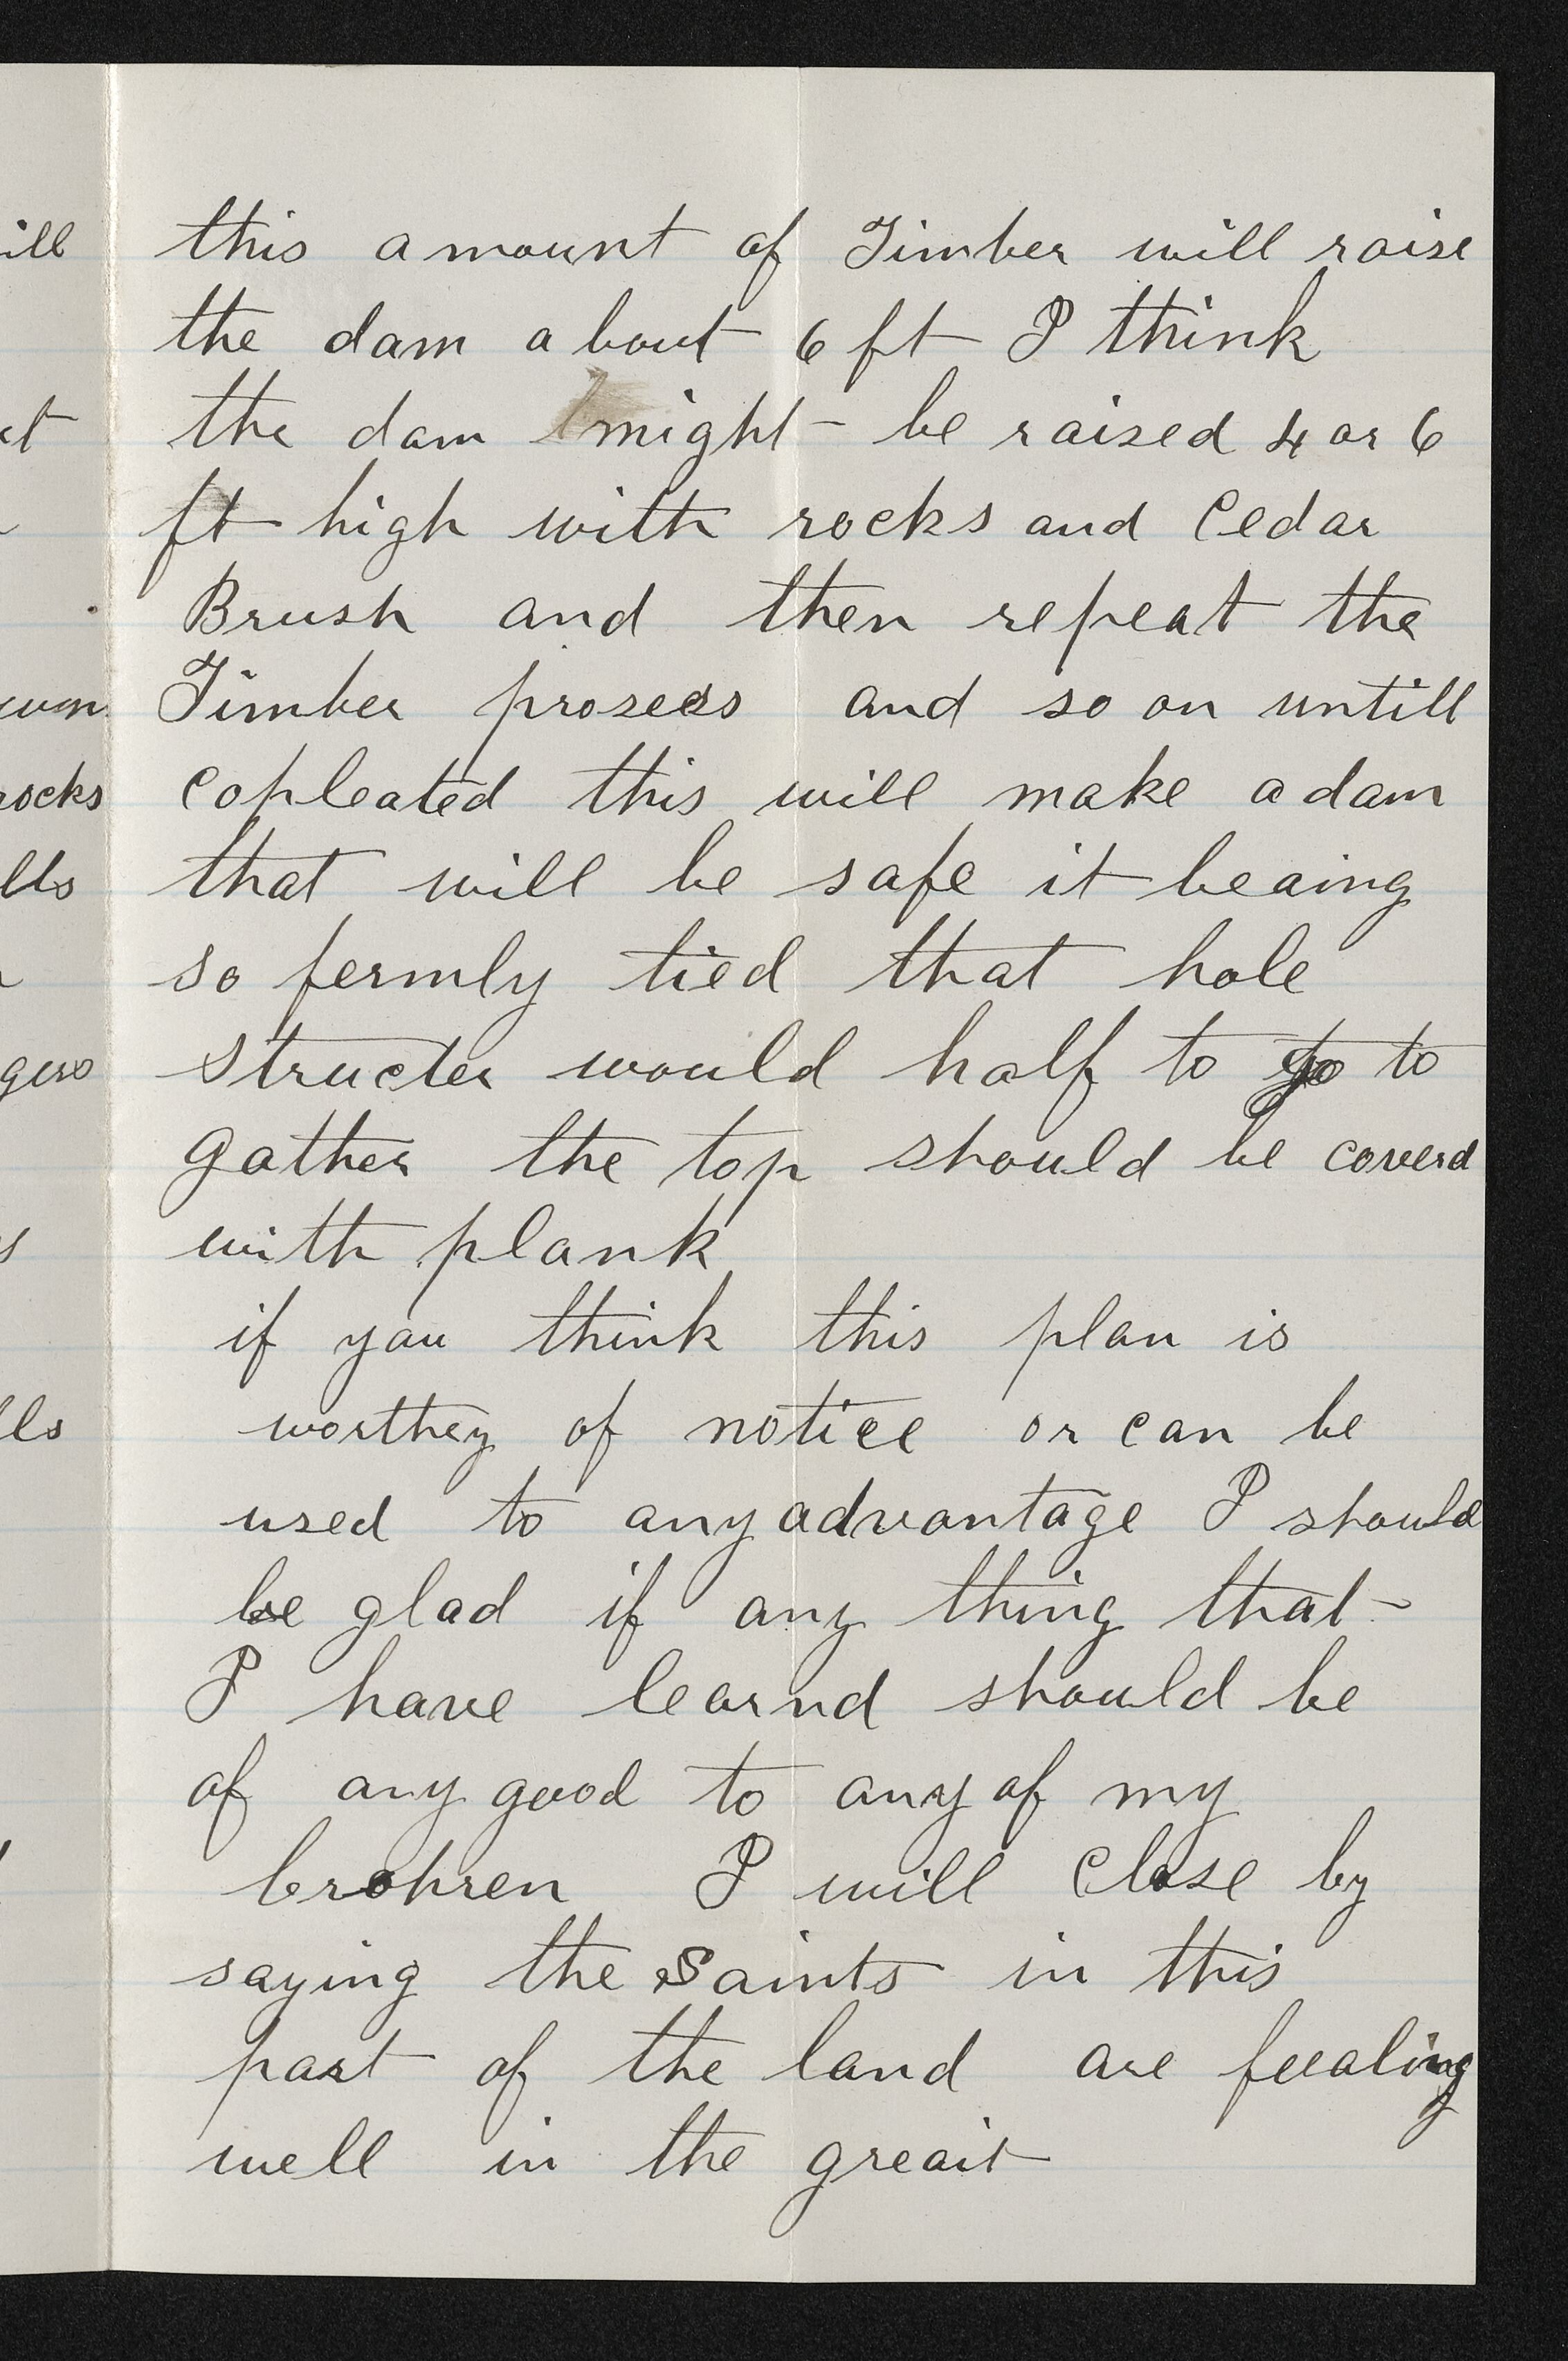 ill
ct
wn
rocks
lls
gers
s
lls
this amount of Timber will raise
the dam about 6 ft I think
the dam might be raised 4 or 6
ft high with rocks and Cedar
Brush and then repeat the
Timber prosess and so on untill
copleated this will make a dam
that will be safe it beaing
so fermly tied that hole
structer would half to go to
gather the top should be coverd
with plank
if you think this plan is
worthey of notice or can be
used to any advantage I should
be glad if any thing that
I have learnd should be
of any good to any of my
brohren I will Close by
saying the Saints in this
part of the land are feealing
well in the greait